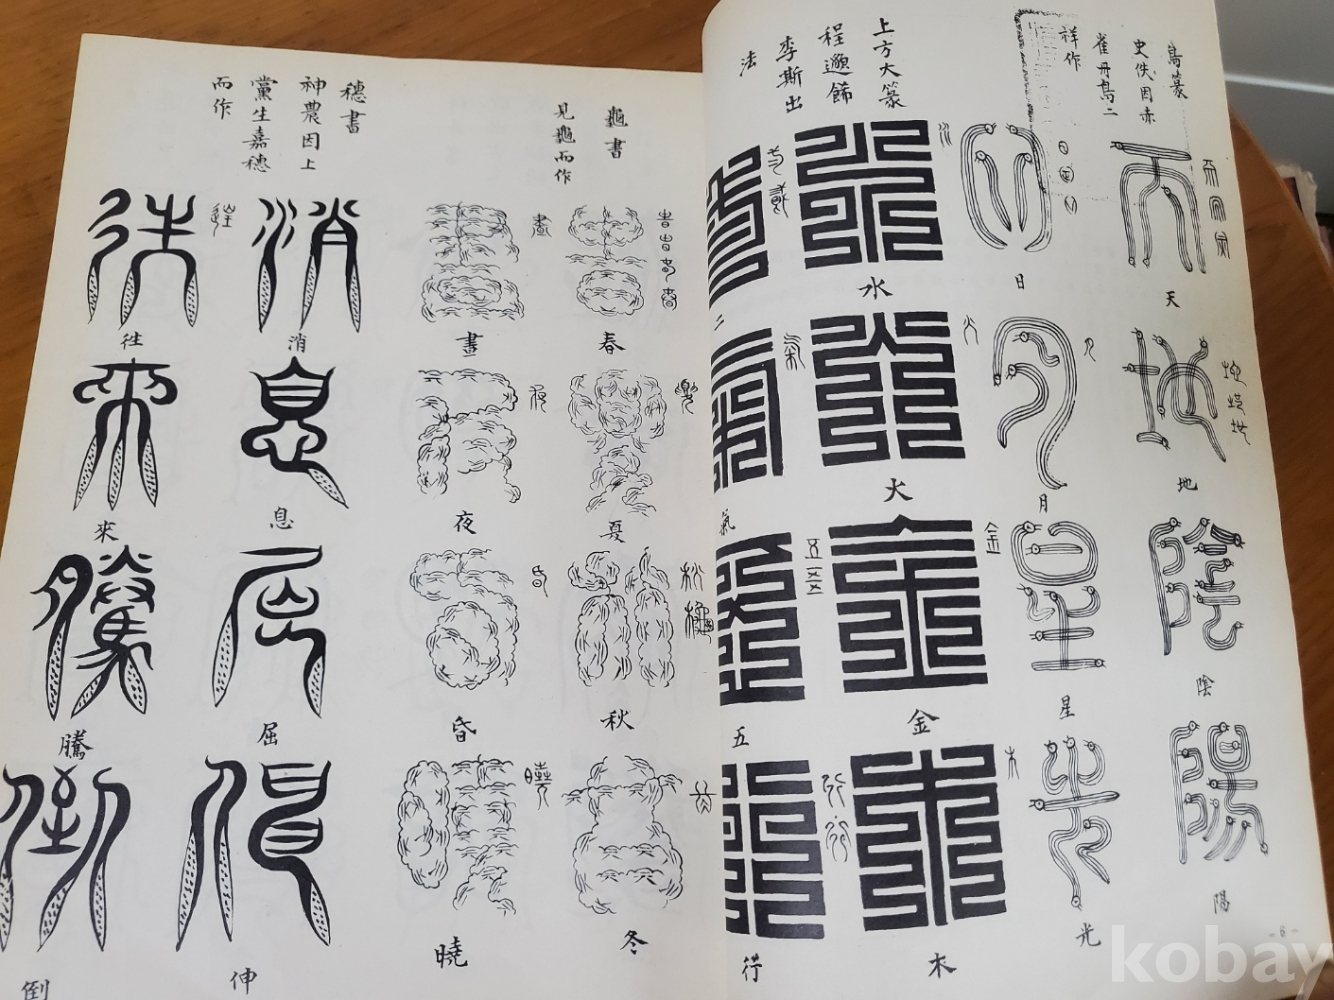 鳥篆
史佚因赤
雀丹鳥二
祥作
天
地
陰
陽
日
月
星
光
上方大篆
程邈飾
李斯出
法
水
火
金
木
二
氣
五
行
龜書
見龜而作
春
夏
秋
冬
晝
夜
昏
曉
穗書
神農因上
黨生嘉穗
而作
消
息
屈
伸
往
來
騰
倒
-6-
kobay